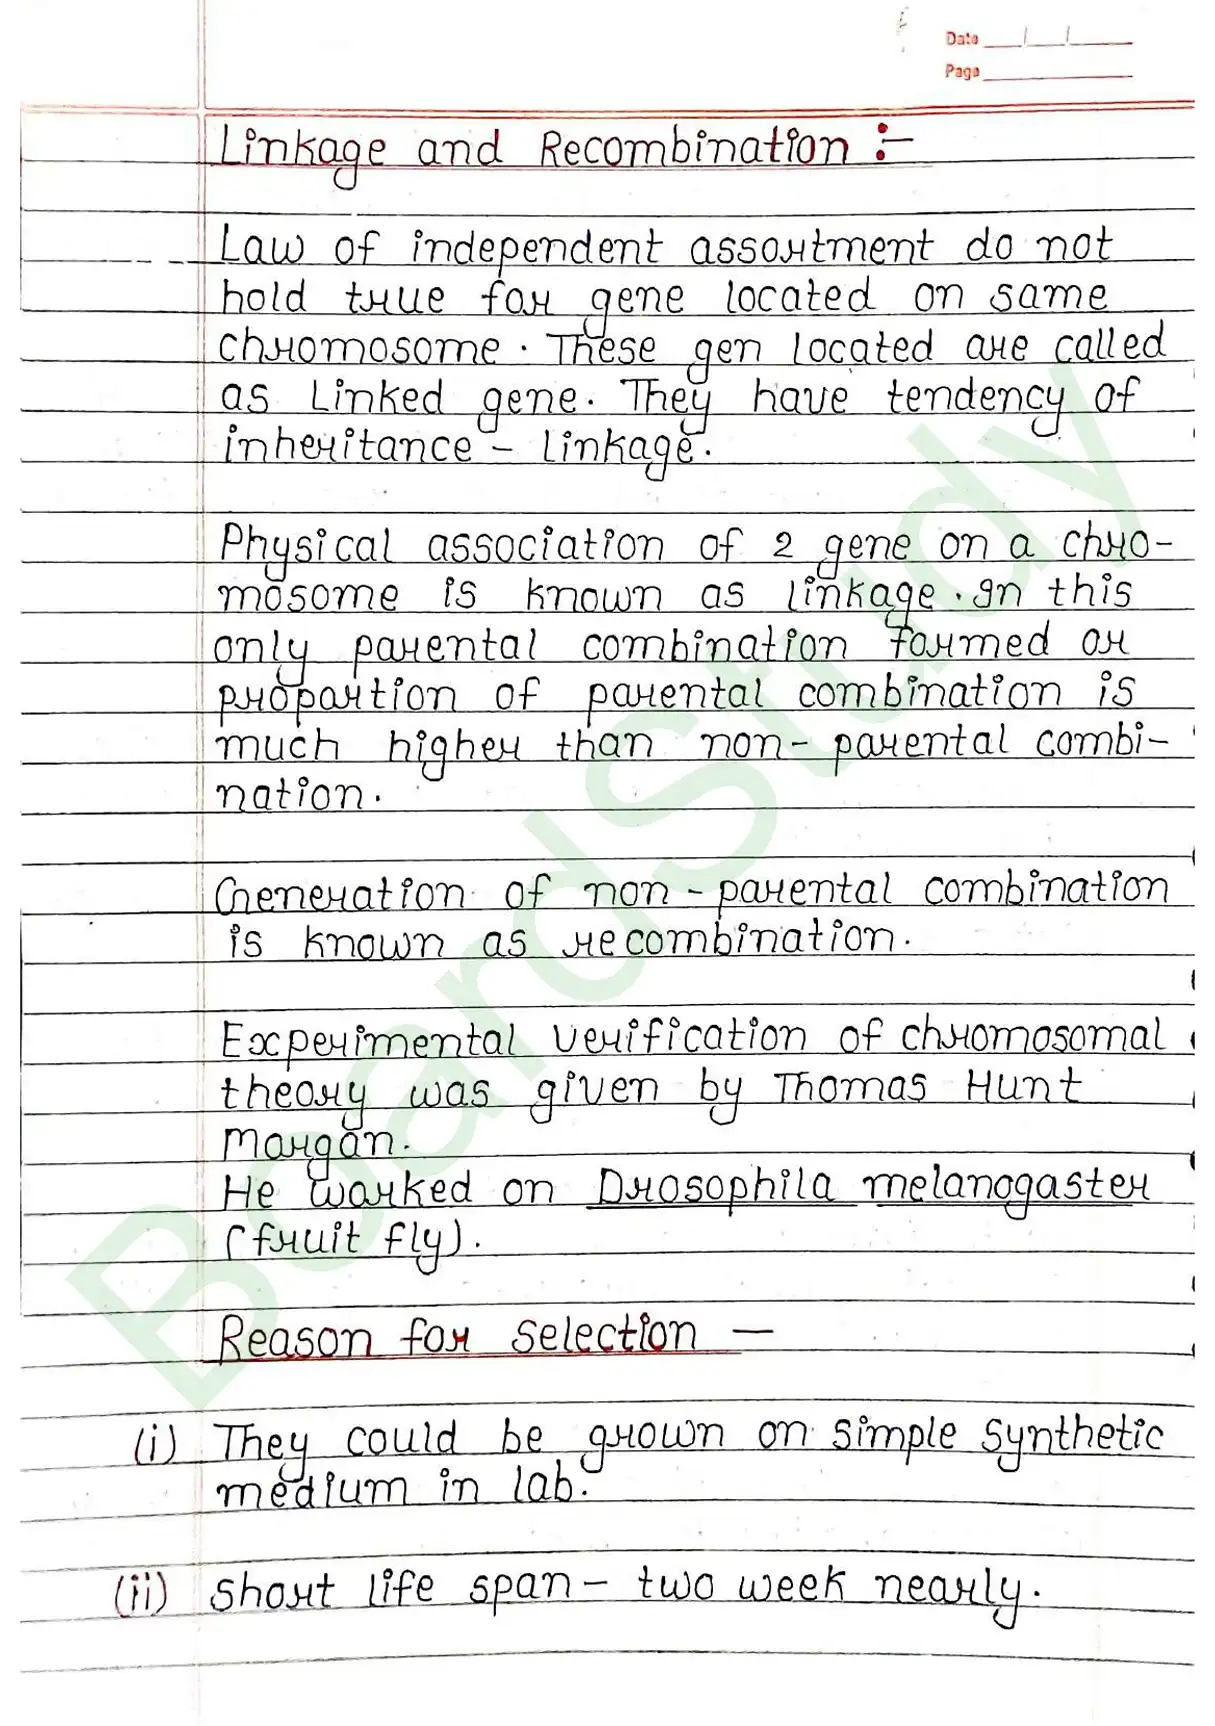 Date __/__/____
Page ________
Linkage and Recombination :-
Law of independent assortment do not
hold true for gene located on same
chromosome. These gen located are called
as Linked gene. They have tendency of
inheritance - linkage.
Physical association of 2 gene on a chro-
mosome is known as linkage. In this
only parental combination formed or
proportion of parental combination is
much higher than non-parental combi-
nation.
Generation of non-parental combination
is known as recombination.
Experimental verification of chromosomal
theory was given by Thomas Hunt
Morgan.
He worked on Drosophila melanogaster
(fruit fly).
Reason for selection -
(i) They could be grown on simple synthetic
medium in lab.
(ii) Short life span - two week nearly.
BoardStudy